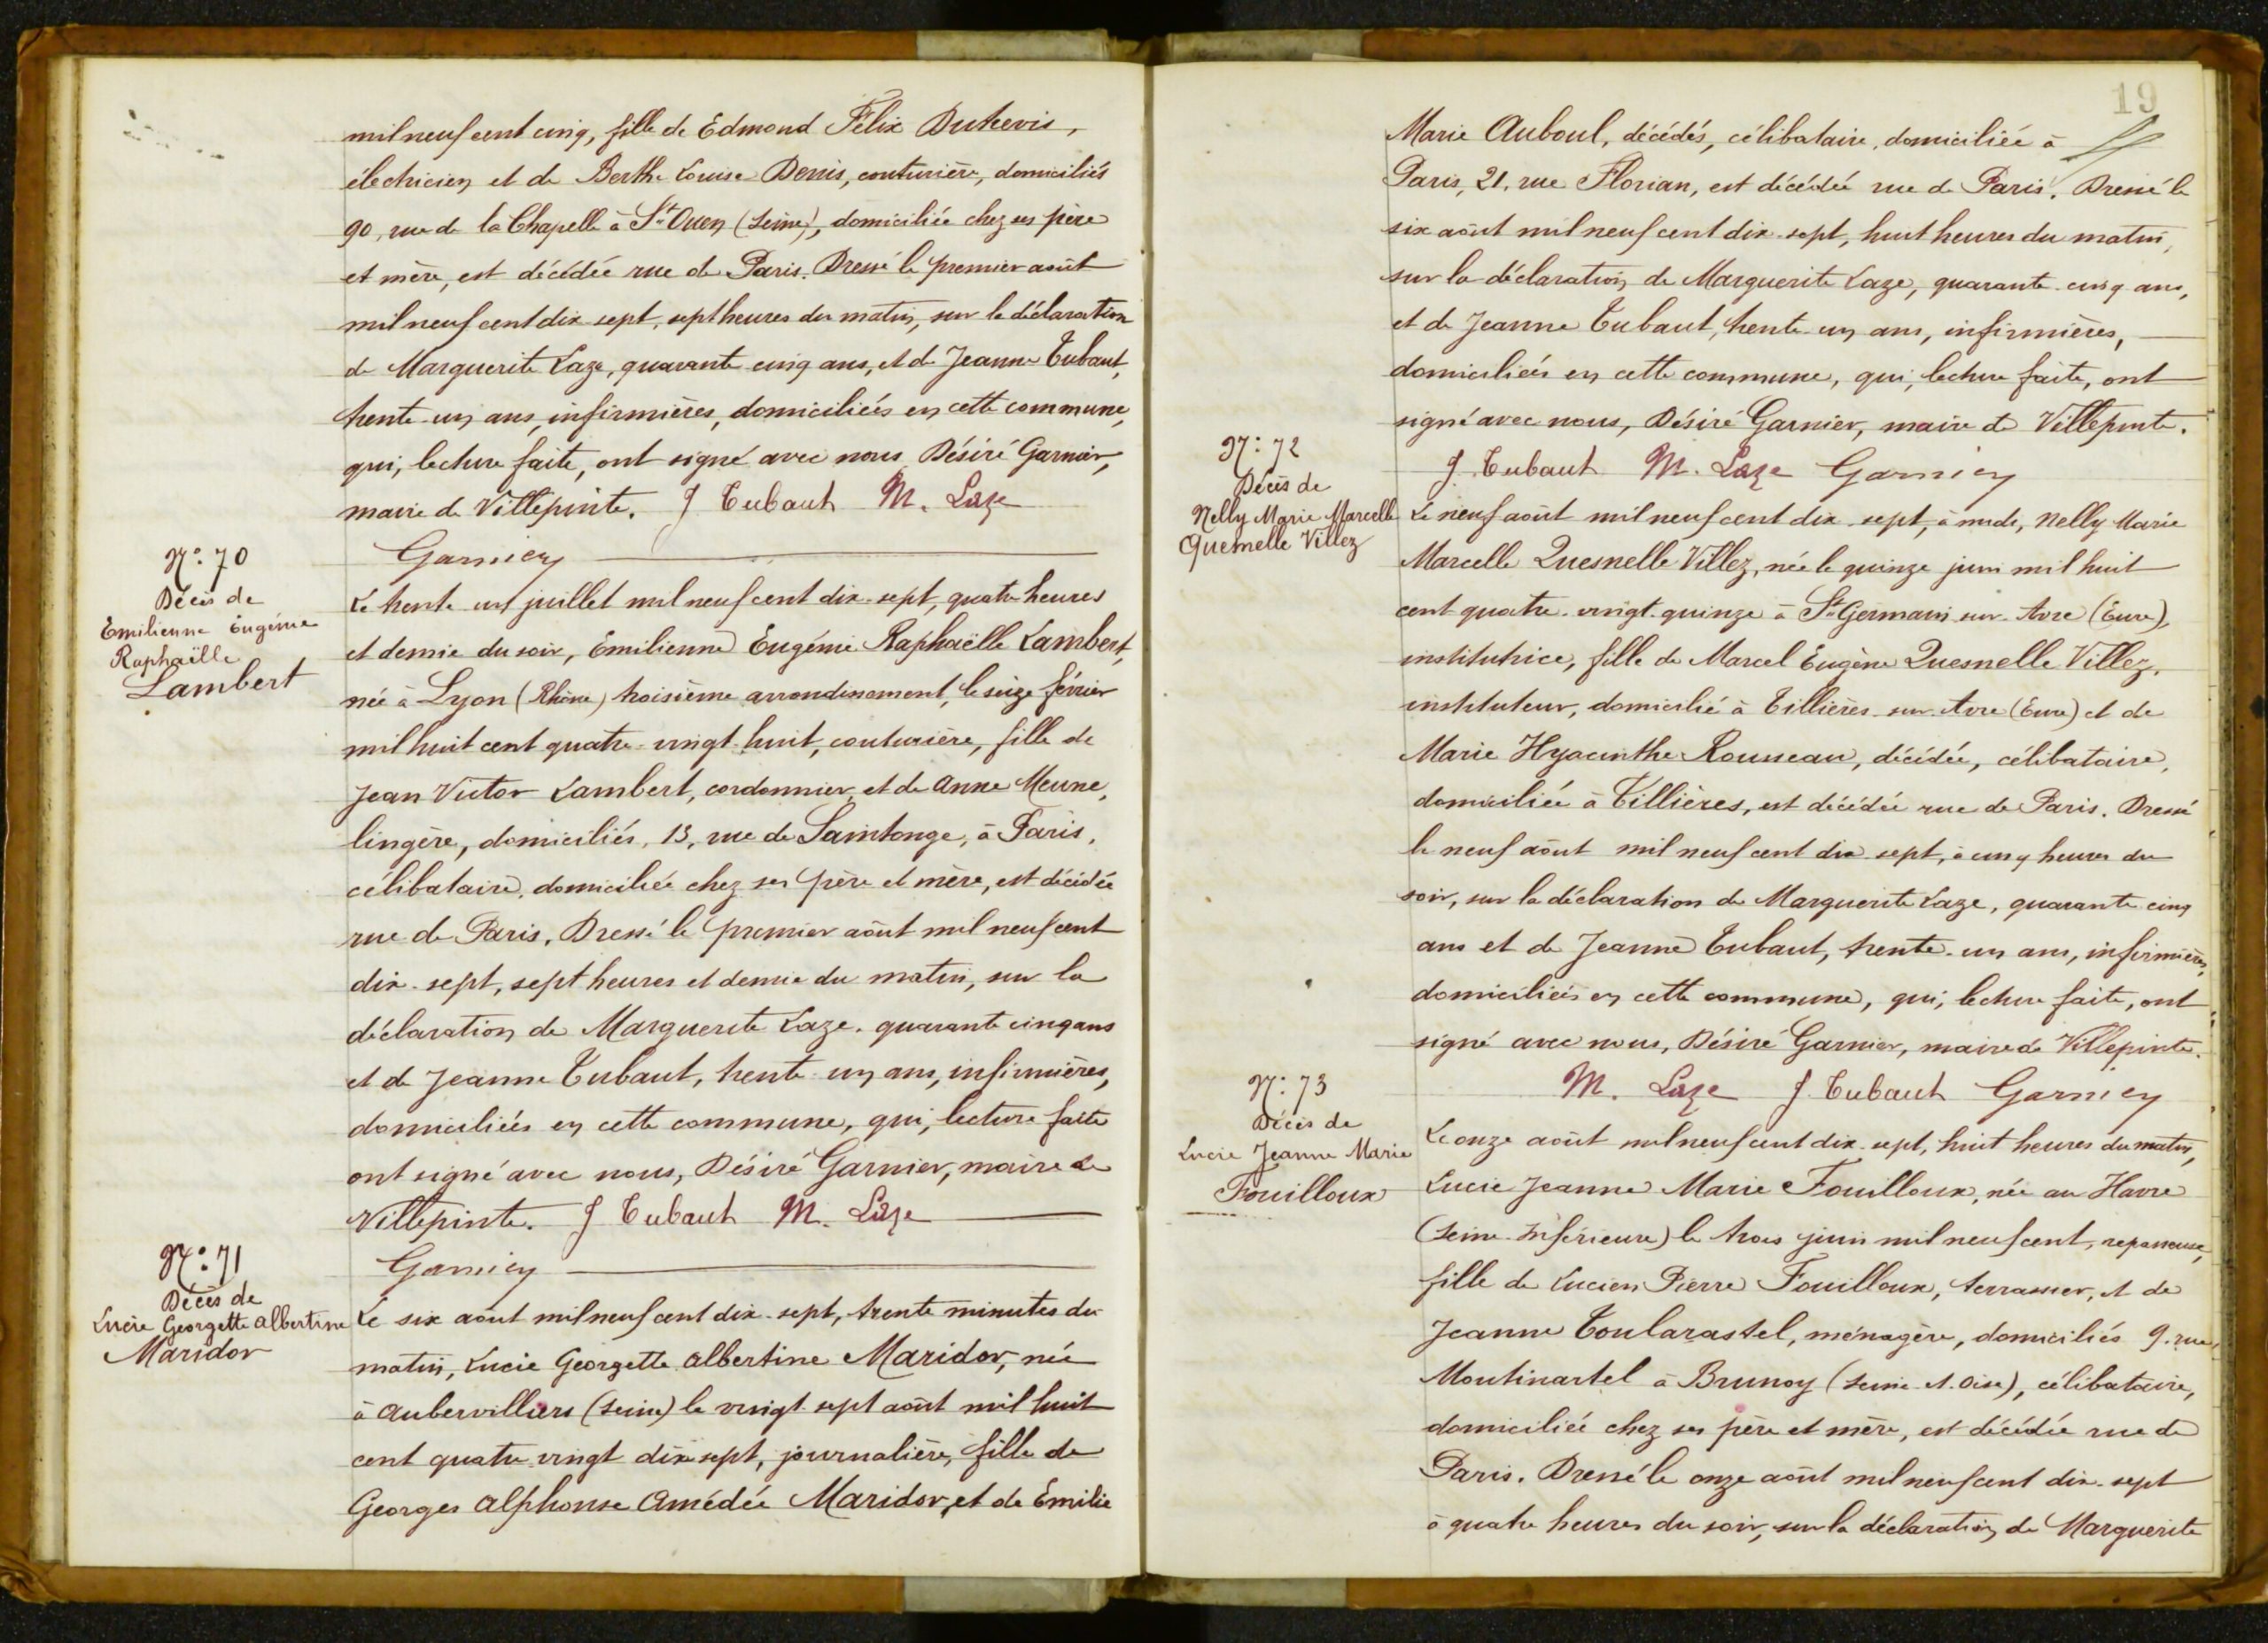 mil neuf cent cinq, fille de Edmond Félix Duhevis,
électricien et de Berthe Louise Denis, couturière, domiciliés
90, rue de la Chapelle à St Ouen (Seine), domiciliée chez ses père
et mère, est décédée rue de Paris. Dressé le premier août
mil neuf cent dix sept, sept heures du matin, sur la déclaration
de Marguerite Laze, quarante cinq ans, et de Jeanne Tubaut,
trente un ans, infirmières, domiciliées en cette commune,
qui, lecture faite, ont signé avec nous Désiré Garnier,
maire de Villepinte. J Tubaut M. Laze
Garnier
No: 70
Décès de
Emilienne Eugénie
Raphaëlle
Lambert
Le trente un juillet mil neuf cent dix-sept, quatre heures
et demie du soir, Emilienne Eugénie Raphaëlle Lambert,
née à Lyon (Rhône) troisième arrondissement, le seize février
mil huit cent quatre-vingt-huit, couturière, fille de
Jean Victor Lambert, cordonnier, et de Anne Meune,
lingère, domiciliés, 13, rue de Saintonge, à Paris,
célibataire, domiciliée chez ses père et mère, est décédée
rue de Paris. Dressé le premier août mil neuf cent
dix-sept, sept heures et demie du matin, sur la
déclaration de Marguerite Laze, quarante cinq ans
et de Jeanne Tubaut, trente-un ans, infirmières,
domiciliées en cette commune, qui, lecture faite
ont signé avec nous, Désiré Garnier, maire de
Villepinte. J Tubaut M. Laze
Garnier
No: 71
Décès de
Lucie Georgette Albertine
Maridor
Le six août mil neuf cent dix-sept, trente minutes du
matin, Lucie Georgette Albertine Maridor, née
à Aubervilliers (Seine) le vingt sept août mil huit
cent quatre vingt dix sept, journalière, fille de
Georges Alphonse Amédée Maridor, et de Emilie
19
Marie Auboul, décédés, célibataire, domiciliée à
Paris, 21, rue Florian, est décédée rue de Paris. Dressé le
six août mil neuf cent dix-sept, huit heures du matin,
sur la déclaration de Marguerite Laze, quarante-cinq ans,
et de Jeanne Tubaut, trente-un ans, infirmières,
domiciliées en cette commune, qui, lecture faite, ont
signé avec nous, Désiré Garnier, maire de Villepinte.
J. Tubaut M. Laze Garnier
No: 72
Décès de
Nelly Marie Marcelle
Quesnelle Villez
Le neuf août mil neuf cent dix-sept, à midi, Nelly Marie
Marcelle Quesnelle Villez, née le quinze juin mil huit
cent quatre-vingt-quinze à St Germain-sur-Avre (Eure),
institutrice, fille de Marcel Eugène Quesnelle Villez,
instituteur, domicilié à Tillières-sur-Avre (Eure) et de
Marie Hyacinthe Rousseau, décédée, célibataire,
domiciliée à Tillières, est décédée rue de Paris. Dressé
le neuf août mil neuf cent dix-sept, à cinq heures du
soir, sur la déclaration de Marguerite Laze, quarante cinq
ans et de Jeanne Tubaut, trente-un ans, infirmières,
domiciliées en cette commune, qui, lecture faite, ont
signé avec nous, Désiré Garnier, maire de Villepinte.
M. Laze J. Tubaut Garnier
No: 73
Décès de
Lucie Jeanne Marie
Fouilloux
Le onze août mil neuf cent dix-sept, huit heures du matin,
Lucie Jeanne Marie Fouilloux, née au Havre
(Seine-Inférieure) le trois juin mil neuf cent, repasseuse,
fille de Lucien Pierre Fouilloux, terrassier, et de
Jeanne Toularastel, ménagère, domiciliés 9. rue
Moutinartel à Brunoy (Seine-et-Oise), célibataire,
domiciliée chez ses père et mère, est décédée rue de
Paris. Dressé le onze août mil neuf cent dix-sept
à quatre heures du soir, sur la déclaration de Marguerite